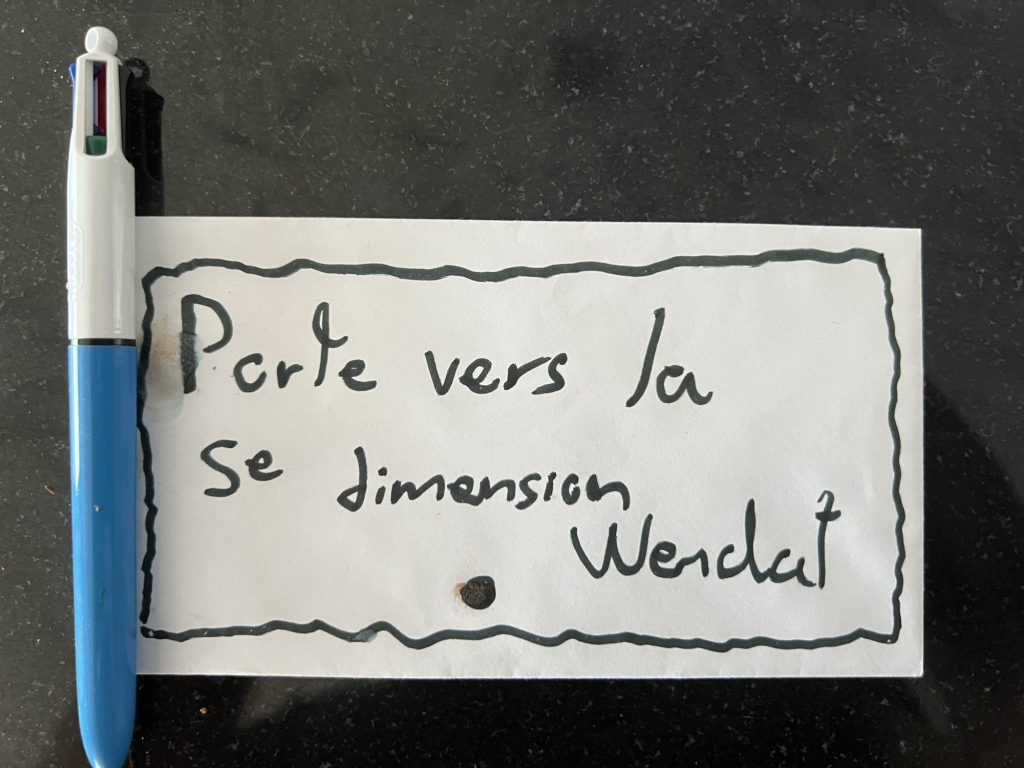 Porte vers la
5e dimension
Wendat